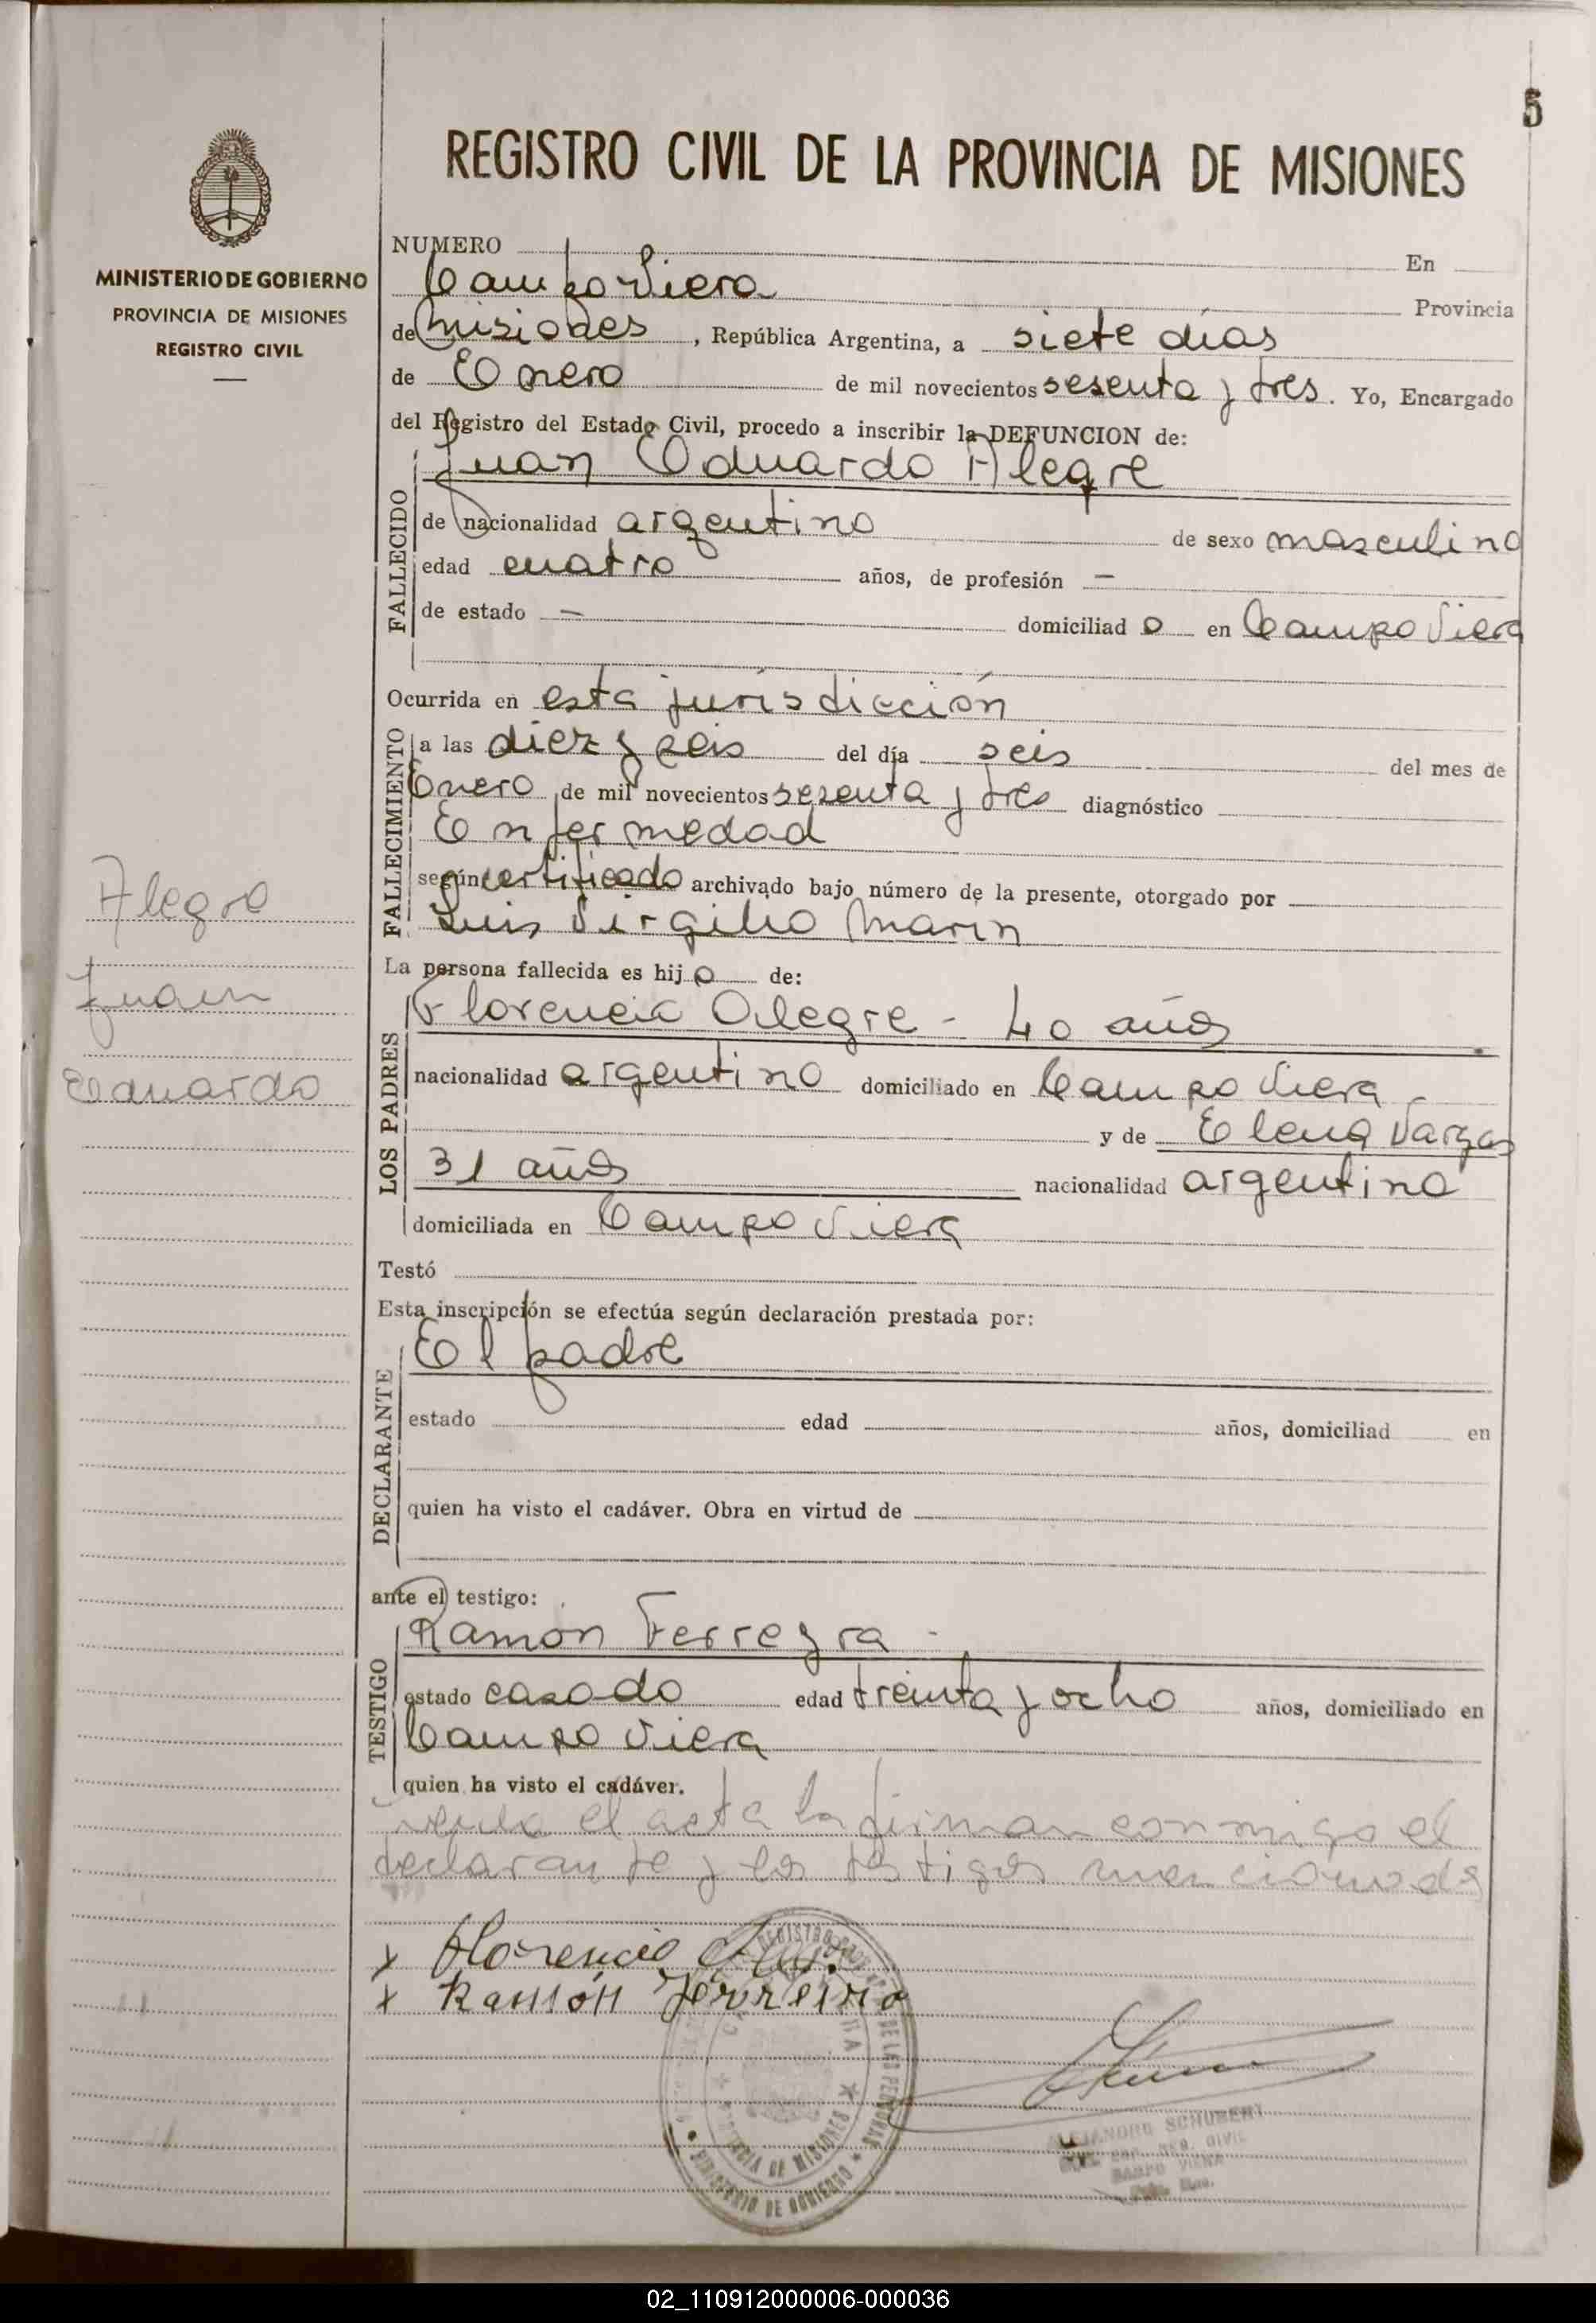 5
REGISTRO CIVIL DE LA PROVINCIA DE MISIONES
MINISTERIO DE GOBIERNO
PROVINCIA DE MISIONES
REGISTRO CIVIL
NUMERO En
Campo Viera Provincia
de Misiones, República Argentina, a siete días
de Enero de mil novecientos sesenta y tres. Yo, Encargado
del Registro del Estado Civil, procedo a inscribir la DEFUNCION de:
Juan Eduardo Alegre
FALLECIDO
de nacionalidad argentino de sexo masculino
edad cuatro años, de profesión —
de estado — domiciliado en Campo Viera
Ocurrida en esta jurisdicción
FALLECIMIENTO
a las diez y seis del día seis del mes de
Enero de mil novecientos sesenta y tres diagnóstico
Enfermedad
según certificado archivado bajo número de la presente, otorgado por
Luis Virgilio Marin
La persona fallecida es hijo de:
LOS PADRES
Florencia Alegre - 40 años
nacionalidad argentino domiciliado en Campo Viera
y de Elena Vargas
31 años nacionalidad argentina
domiciliada en Campo Viera
Testó
Esta inscripción se efectúa según declaración prestada por:
DECLARANTE
El padre
estado edad años, domiciliad en
quien ha visto el cadáver. Obra en virtud de
ante el testigo:
TESTIGO
Ramón Ferreyra
estado casado edad treinta y ocho años, domiciliado en
Campo Viera
quien ha visto el cadáver.
el acta la firman conmigo el
declarante y los testigos mencionados
x Florencio
x Ramón Ferreira
REGISTRO DE LAS PERSONAS
PROVINCIA DE MISIONES
MINISTERIO DE GOBIERNO
ALEJANDRO SCHUBERT
REG. CIVIL
CAMPO VIERA
Alegre
Juan
Eduardo
02_110912000006-000036